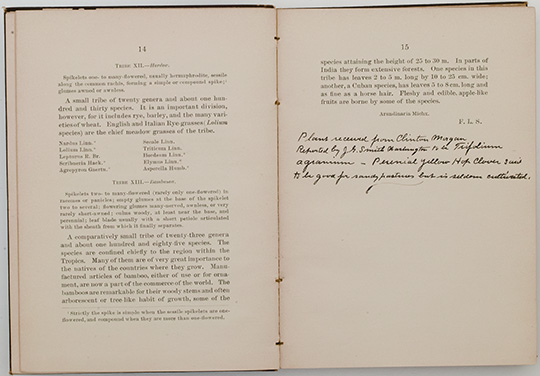 14
TRIBE XII.—Hordeæ.
Spikelets one- to many-flowered, usually hermaphrodite, sessile
along the common rachis, forming a simple or compound spike;¹
glumes awned or awnless.
A small tribe of twenty genera and about one hun-
dred and thirty species. It is an important division,
however, for it includes rye, barley, and the many vari-
eties of wheat. English and Italian Rye-grasses (Lolium
species) are the chief meadow grasses of the tribe.
Nardus Linn. Secale Linn.
Lolium Linn. Triticum Linn.
Lepturus R. Br. Hordeum Linn.
Scribneria Hack. Elymus Linn.
Agropyron Gaertn. Asperella Humb.
TRIBE XIII.—
Spikelets two- to many-flowered (rarely only one-flowered) in
racemes or panicles; empty glumes at the base of the spikelet
two to several; flowering glumes many-nerved, awnless, or very
rarely short-awned; culms woody, at least near the base, and
perennial; leaf blade usually with a short petiole articulated
with the sheath from which it finally separates.
A comparatively small tribe of twenty-three genera
and about one hundred and eighty-five species. The
species are confined chiefly to the region within the
Tropics. Many of them are of very great importance to
the natives of the countries where they grow. Manu-
factured articles of bamboo, either of use or for orna-
ment, are now a part of the commerce of the world. The
bamboos are remarkable for their woody stems and often
arborescent or tree-like habit of growth, some of the
¹ Strictly the spike is simple when the sessile spikelets are one-
flowered, and compound when they are more than one-flowered.
15
species attaining the height of 25 to 30 m. In parts of
India they form extensive forests. One species in this
tribe has leaves 2 to 5 m. long by 10 to 25 cm. wide;
another, a Cuban species, has leaves 5 to 8 cm. long and
as fine as a horse hair. Fleshy and edible, apple-like
fruits are borne by some of the species.
Arundinaria Michx.
F. L. S.
Plans received from Clinton Magan
Reported by J. G. Smith Washington to be Trifolium
agrarium – Perenial yellow Hop Clover said
to be good for sandy pastures but is seldom cultivated.